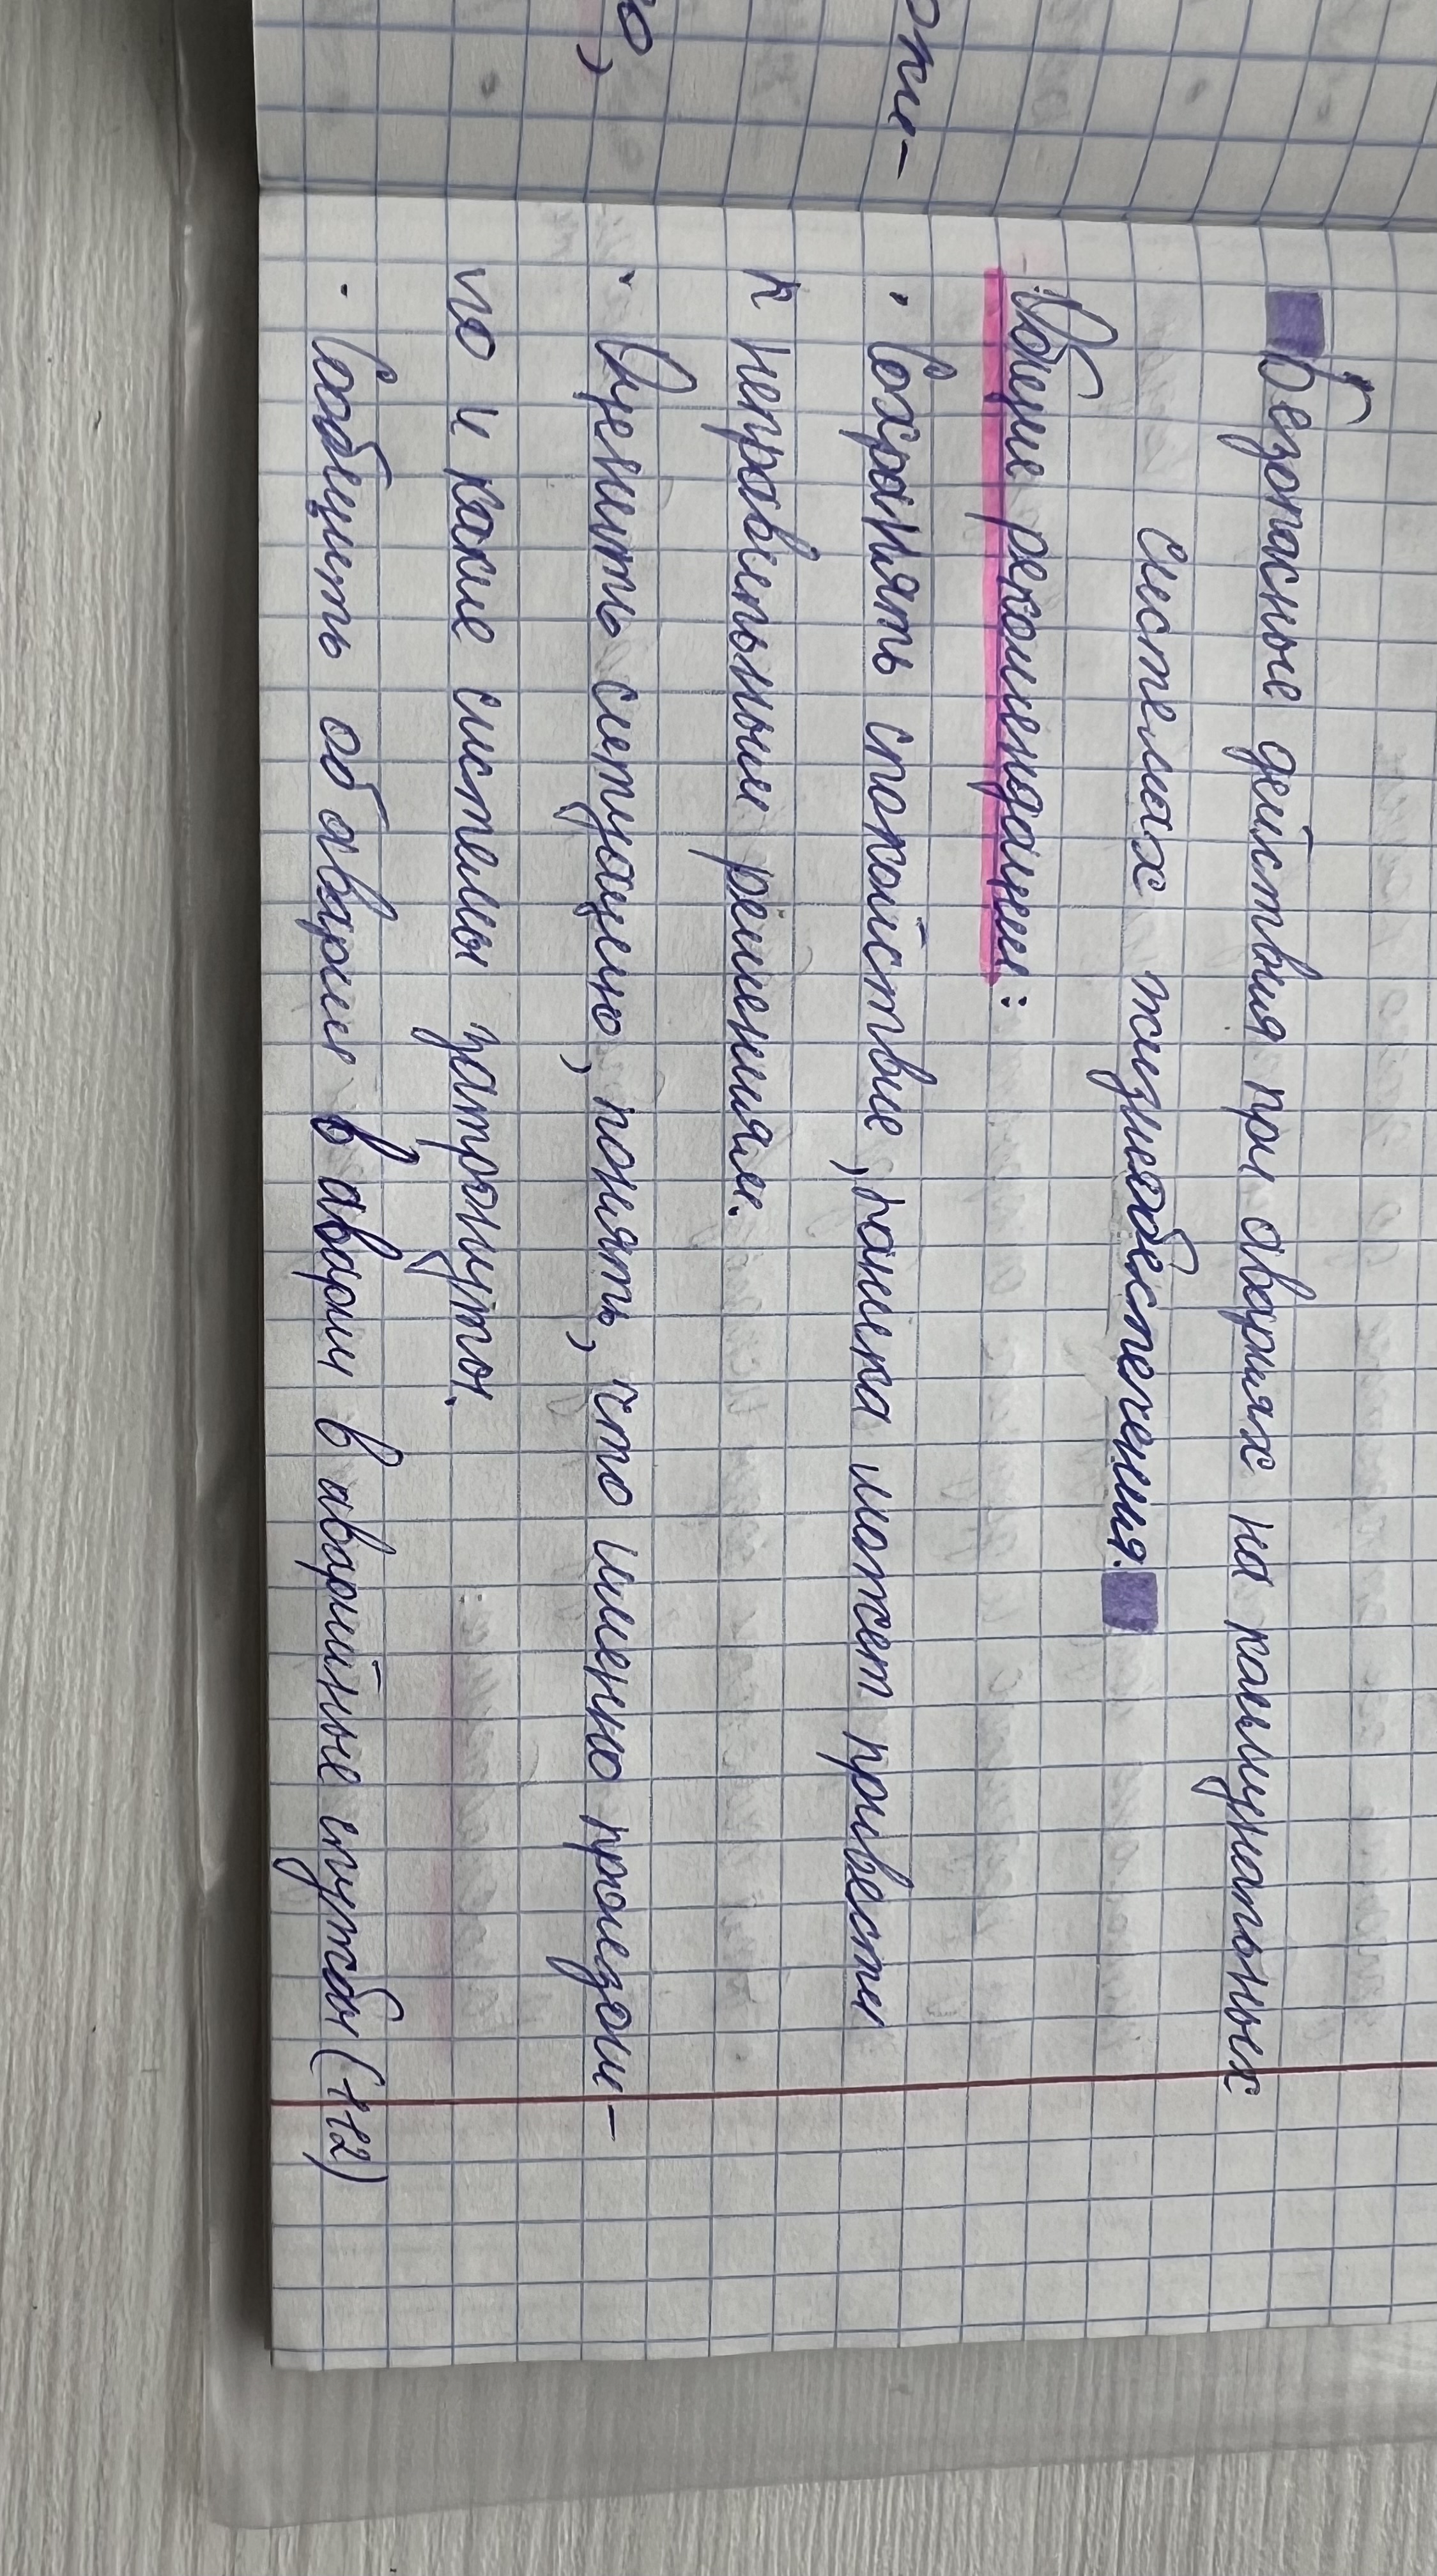 оти-
о,
Безопасные действия при авариях на коммунальных
системах жизнеобеспечения.
Общие рекомендации:
· Сохранять спокойствие, паника может привести
к неправильным решениям.
· Оценить ситуацию, понять, что именно произош-
ло и какие системы затронуты.
· Сообщить об аварии в аварии в аварийные службы (112)